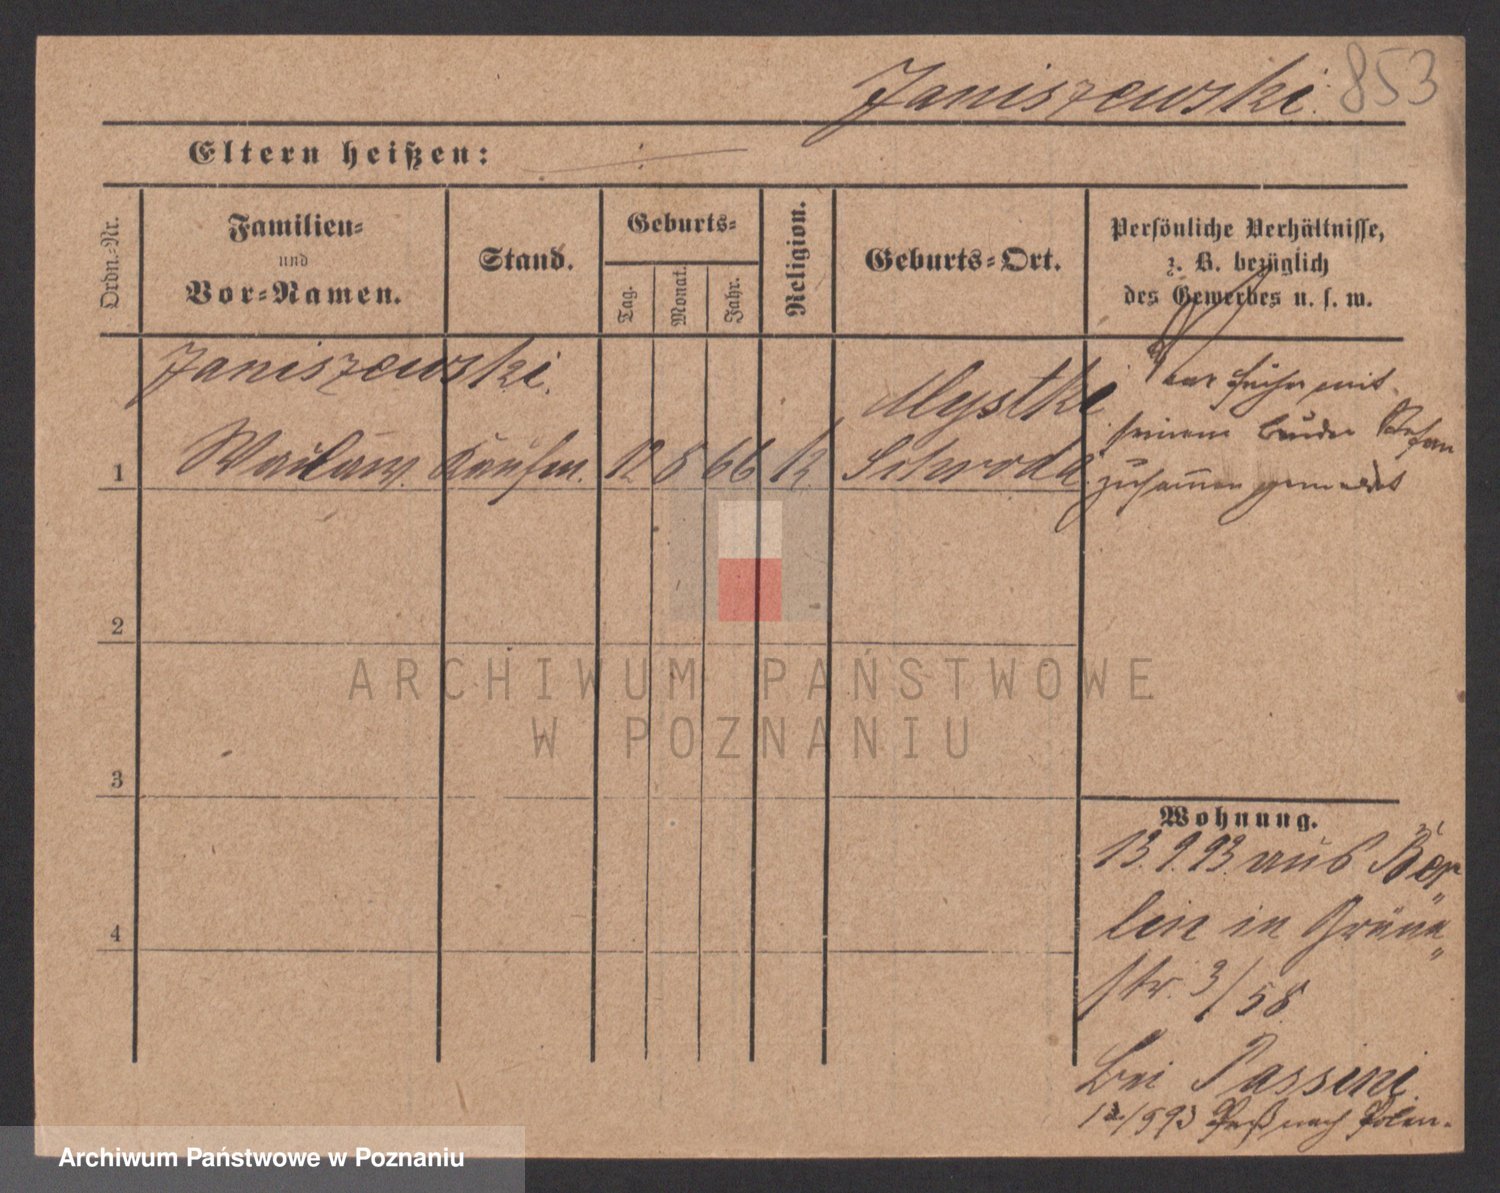 Janiszewski.
853
Eltern heißen:
Ordn.-Nr.
Familien-
und
Vor-Namen.
Stand.
Geburts-
Tag.
Monat.
Jahr.
Religion.
Geburts-Ort.
Persönliche Verhältnisse,
z. B. bezüglich
des Gewerbes u. s. w.
Janiszewski.
1 Waclaw. Kaufm. 12 8 66 k
Mystki
Schroda
war früher mit
seinem Bruder Stefan
zusammen gemeldet
2
3
4
Wohnung.
13.9.93. aus Ber
lin in Grüne
str. 3/58
bei Passini
ARCHIWUM PAŃSTWOWE
W POZNANIU
Archiwum Państwowe w Poznaniu